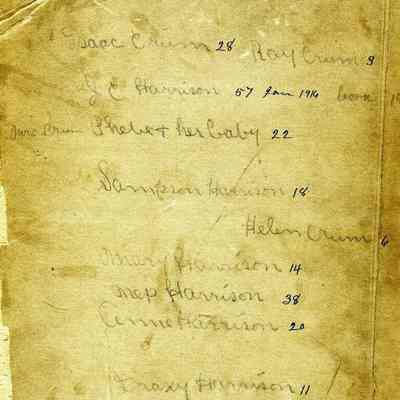 Isaac Crum 28 Ray Crum 3
J E Harrison 57 Jan 1916 born
Crum Phebe & her baby 22
Sampson Harrison 18
Helen Crum 6
Mary Harrison 14
Harrison 38
Harrison 20
Harrison 11